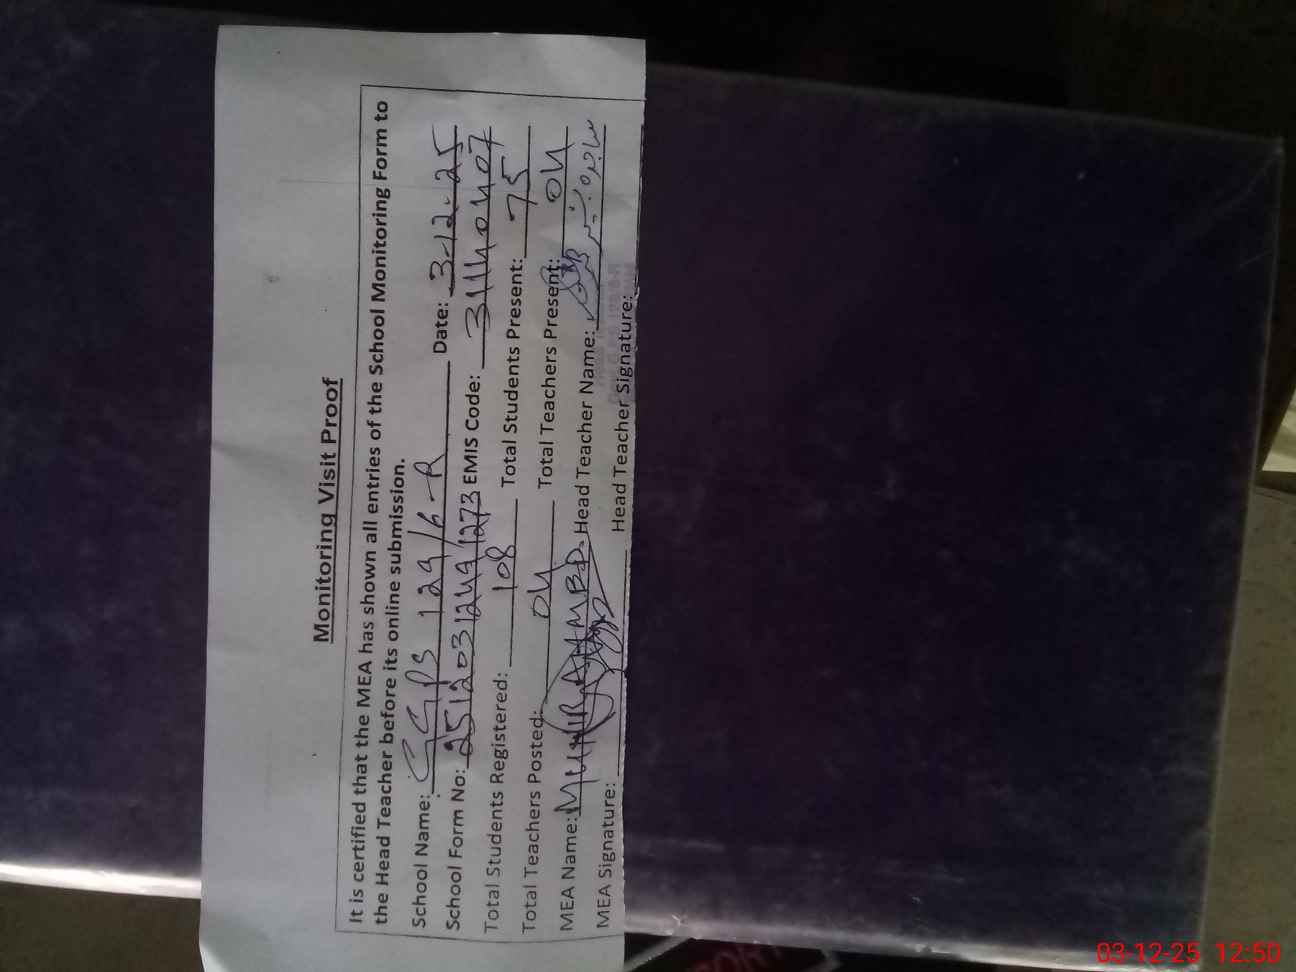 Monitoring Visit Proof
It is certified that the MEA has shown all entries of the School Monitoring Form to
the Head Teacher before its online submission.
School Name: GGPS 129/6-R Date: 3-12-25
School Form No: 25120312491273 EMIS Code: 31140407
Total Students Registered: 108 Total Students Present: 75
Total Teachers Posted: 04 Total Teachers Present: 04
MEA Name: MUNIR AHMED Head Teacher Name: ساجدہ
MEA Signature: Head Teacher Signature:
03-12-25 12:50